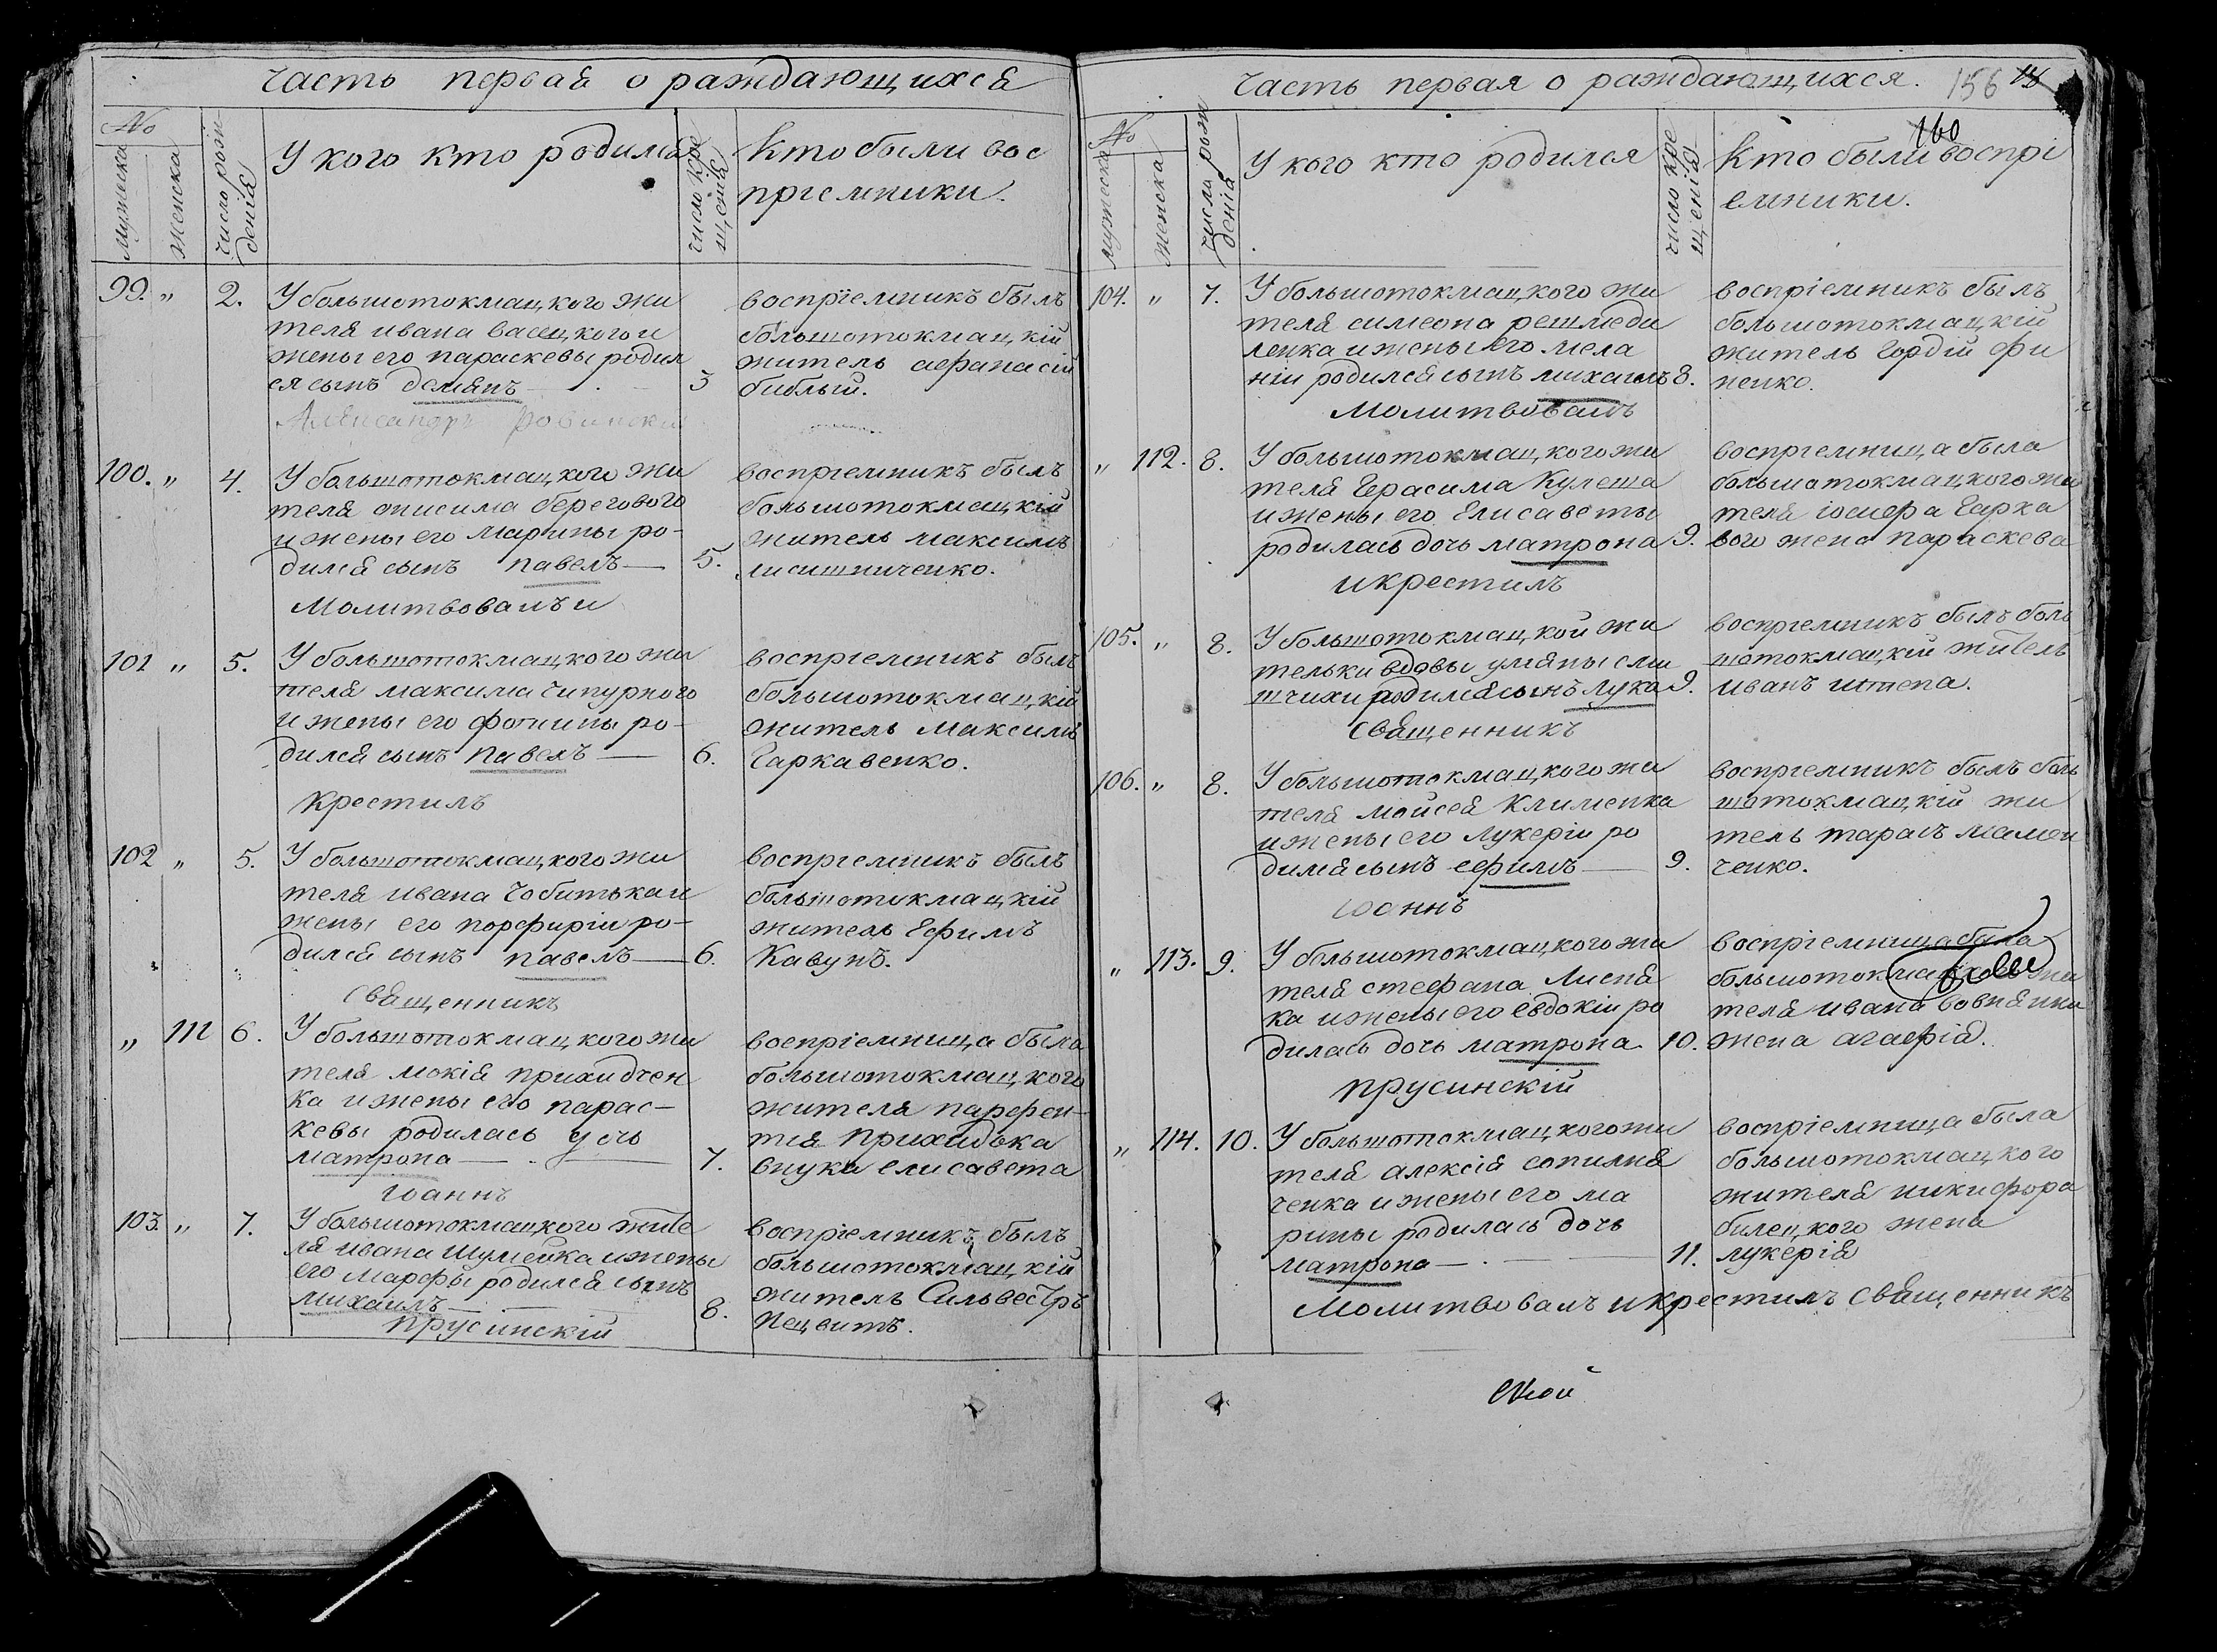 часть первая о раждающихся
No
мужеска
женска
число рож
денія
У кого кто родился
число кре
щенія
Кто были вос
пріемники.
99. „ 2. У большотокмацкого жи
теля ивана васецкого и
жены его параскевы родил
ся сынъ демянъ 3
воспріемникъ былъ
большотокмацкій
житель афанасій
библый.
Александръ Ровинскій
100. „ 4. У большотокмацкого жи
теля онисима берегового
и жены его марины ро-
дился сынъ павелъ 5.
воспріемникъ былъ
большотокмацкій
житель максимъ
лисишниченко.
Молитвовалъ и
101 „ 5. У большотокмацкого жи
теля максима чипурного
и жены его фотины ро-
дился сынъ павелъ 6.
воспріемникъ былъ
большотокмацкій
житель Максимъ
Гаркавенко.
Крестилъ
102 „ 5. У большотокмацкого жи
теля ивана чобитька и
жены его порфиріи ро-
дился сынъ павелъ 6.
воспріемникъ былъ
большотокмацкій
житель Ефимъ
Кавунъ.
Священникъ
„ 111 6. У большотокмацкого жи
теля мокія прихидчен
ка и жены его парас-
кевы родилась дочь
матрона 7.
воспріемница была
большотокмацкого
жителя парфен-
тія прихидька
внука елисавета
Іоаннъ
103. „ 7. У большотокмацкого жите
ля ивана шумейка и жены
его марфы родился сынъ
михаилъ 8.
воспріемникъ былъ
большотокмацкій
житель Сильвестръ
Пецвитъ.
Прусинскій
часть первая о раждающихся. 156
160
No
мужеска
женска
числа рож
денія
У кого кто родился
число кре
щенія
Кто были воспрі
емники.
104. „ 7. У большотокмацкого жи
теля симеона решмеди
ленка и жены его мела
ніи родился сынъ михаилъ 8.
воспріемникъ былъ
большотокмацкій
житель Гордій фи
ненко.
Молитвовалъ
„ 112. 8. У большотокмацкого жи
теля Герасима Кулеша
и жены его Елисаветы
родилась дочь матрона 9.
воспріемница была
большотокмацкого жи
теля іосифа Гарка
вого жена параскева
и крестилъ
105. „ 8. У большотокмацкой жи
тельки вдовы уляны сли
тчихи родился сынъ лука 9.
воспріемникъ былъ боль
шотокмацкій житель
иванъ штепа.
Священникъ
106. „ 8. У большотокмацкого жи
теля моисея Клименка
и жены его лукеріи ро
дился сынъ ефимъ 9.
воспріемникъ былъ боль
шотокмацкій жи
тель тарасъ мамон
ченко.
Іоаннъ
„ 113. 9. У большотокмацкого жи
теля стефана Лисня
ка и жены его евдокіи ро
дилась дочь матрона 10.
воспріемница была
большотокмацкого жи
теля ивана вовнянки
жена агафія.
Прусинскій
„ 114. 10. У большотокмацкого жи
теля алексія сопилня
ченка и жены его ма
рины родилась дочь
матрона 11.
воспріемница была
большотокмацкого
жителя никифора
билецкого жена
лукерія
Молитвовалъ и крестилъ Священникъ